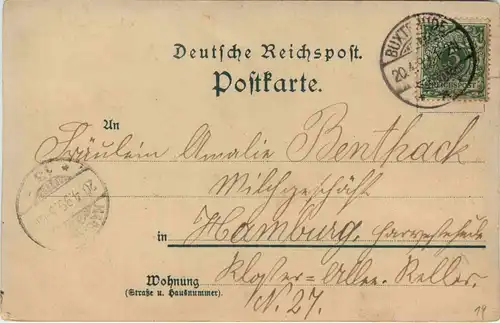 Deutsche Reichspost.
Postkarte.
BUXTEHUDE
20.4.
5
REICHSPOST
An
Fräulein Amalie Benthack
Milchgeschäft
in Hamburg, Harvestehude
Kloster=Allee. Keller.
Wohnung
(Straße u. Hausnummer).
N. 27.
20.4.99.
19